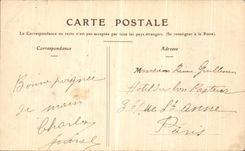 CARTE POSTALE
La Correspondance au recto n'est pas acceptée par tous les pays étrangers. (Se renseigner à la Poste)
Correspondance
Adresse
Bonne poignée
de main
Charles
Monsieur
Hotel du bon Pasteur
rue Ste Anne
Paris